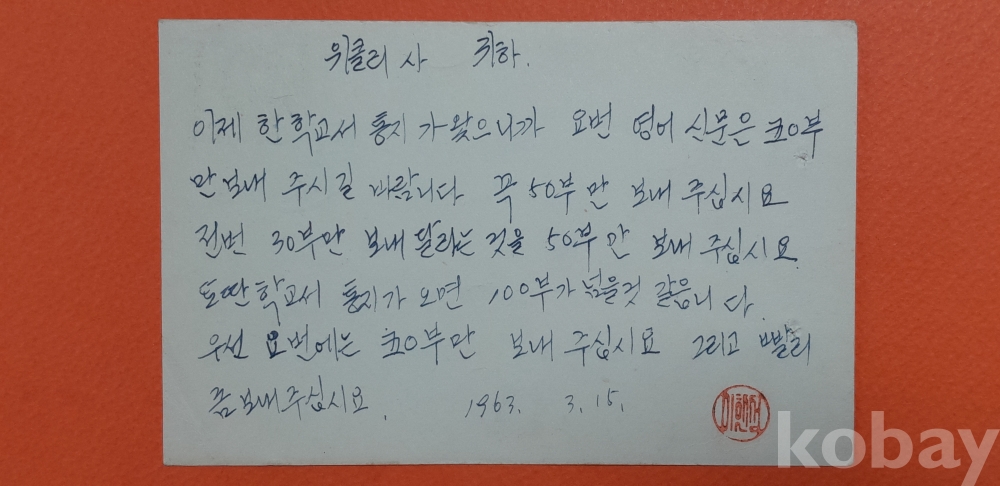 위클리사 귀하.
이제 한 학교서 통지가 왔으니까 요번 영어 신문은 50부
만 보내 주시길 바랍니다 꼭 50부만 보내 주십시요
전번 30부만 보내 달라는 것을 50부만 보내 주십시요
또 딴 학교서 통지가 오면 100부가 넘을것 같읍니다.
우선 요번에는 50부만 보내 주십시요 그리고 빨리
좀 보내 주십시요. 1963. 3. 15.
kobay